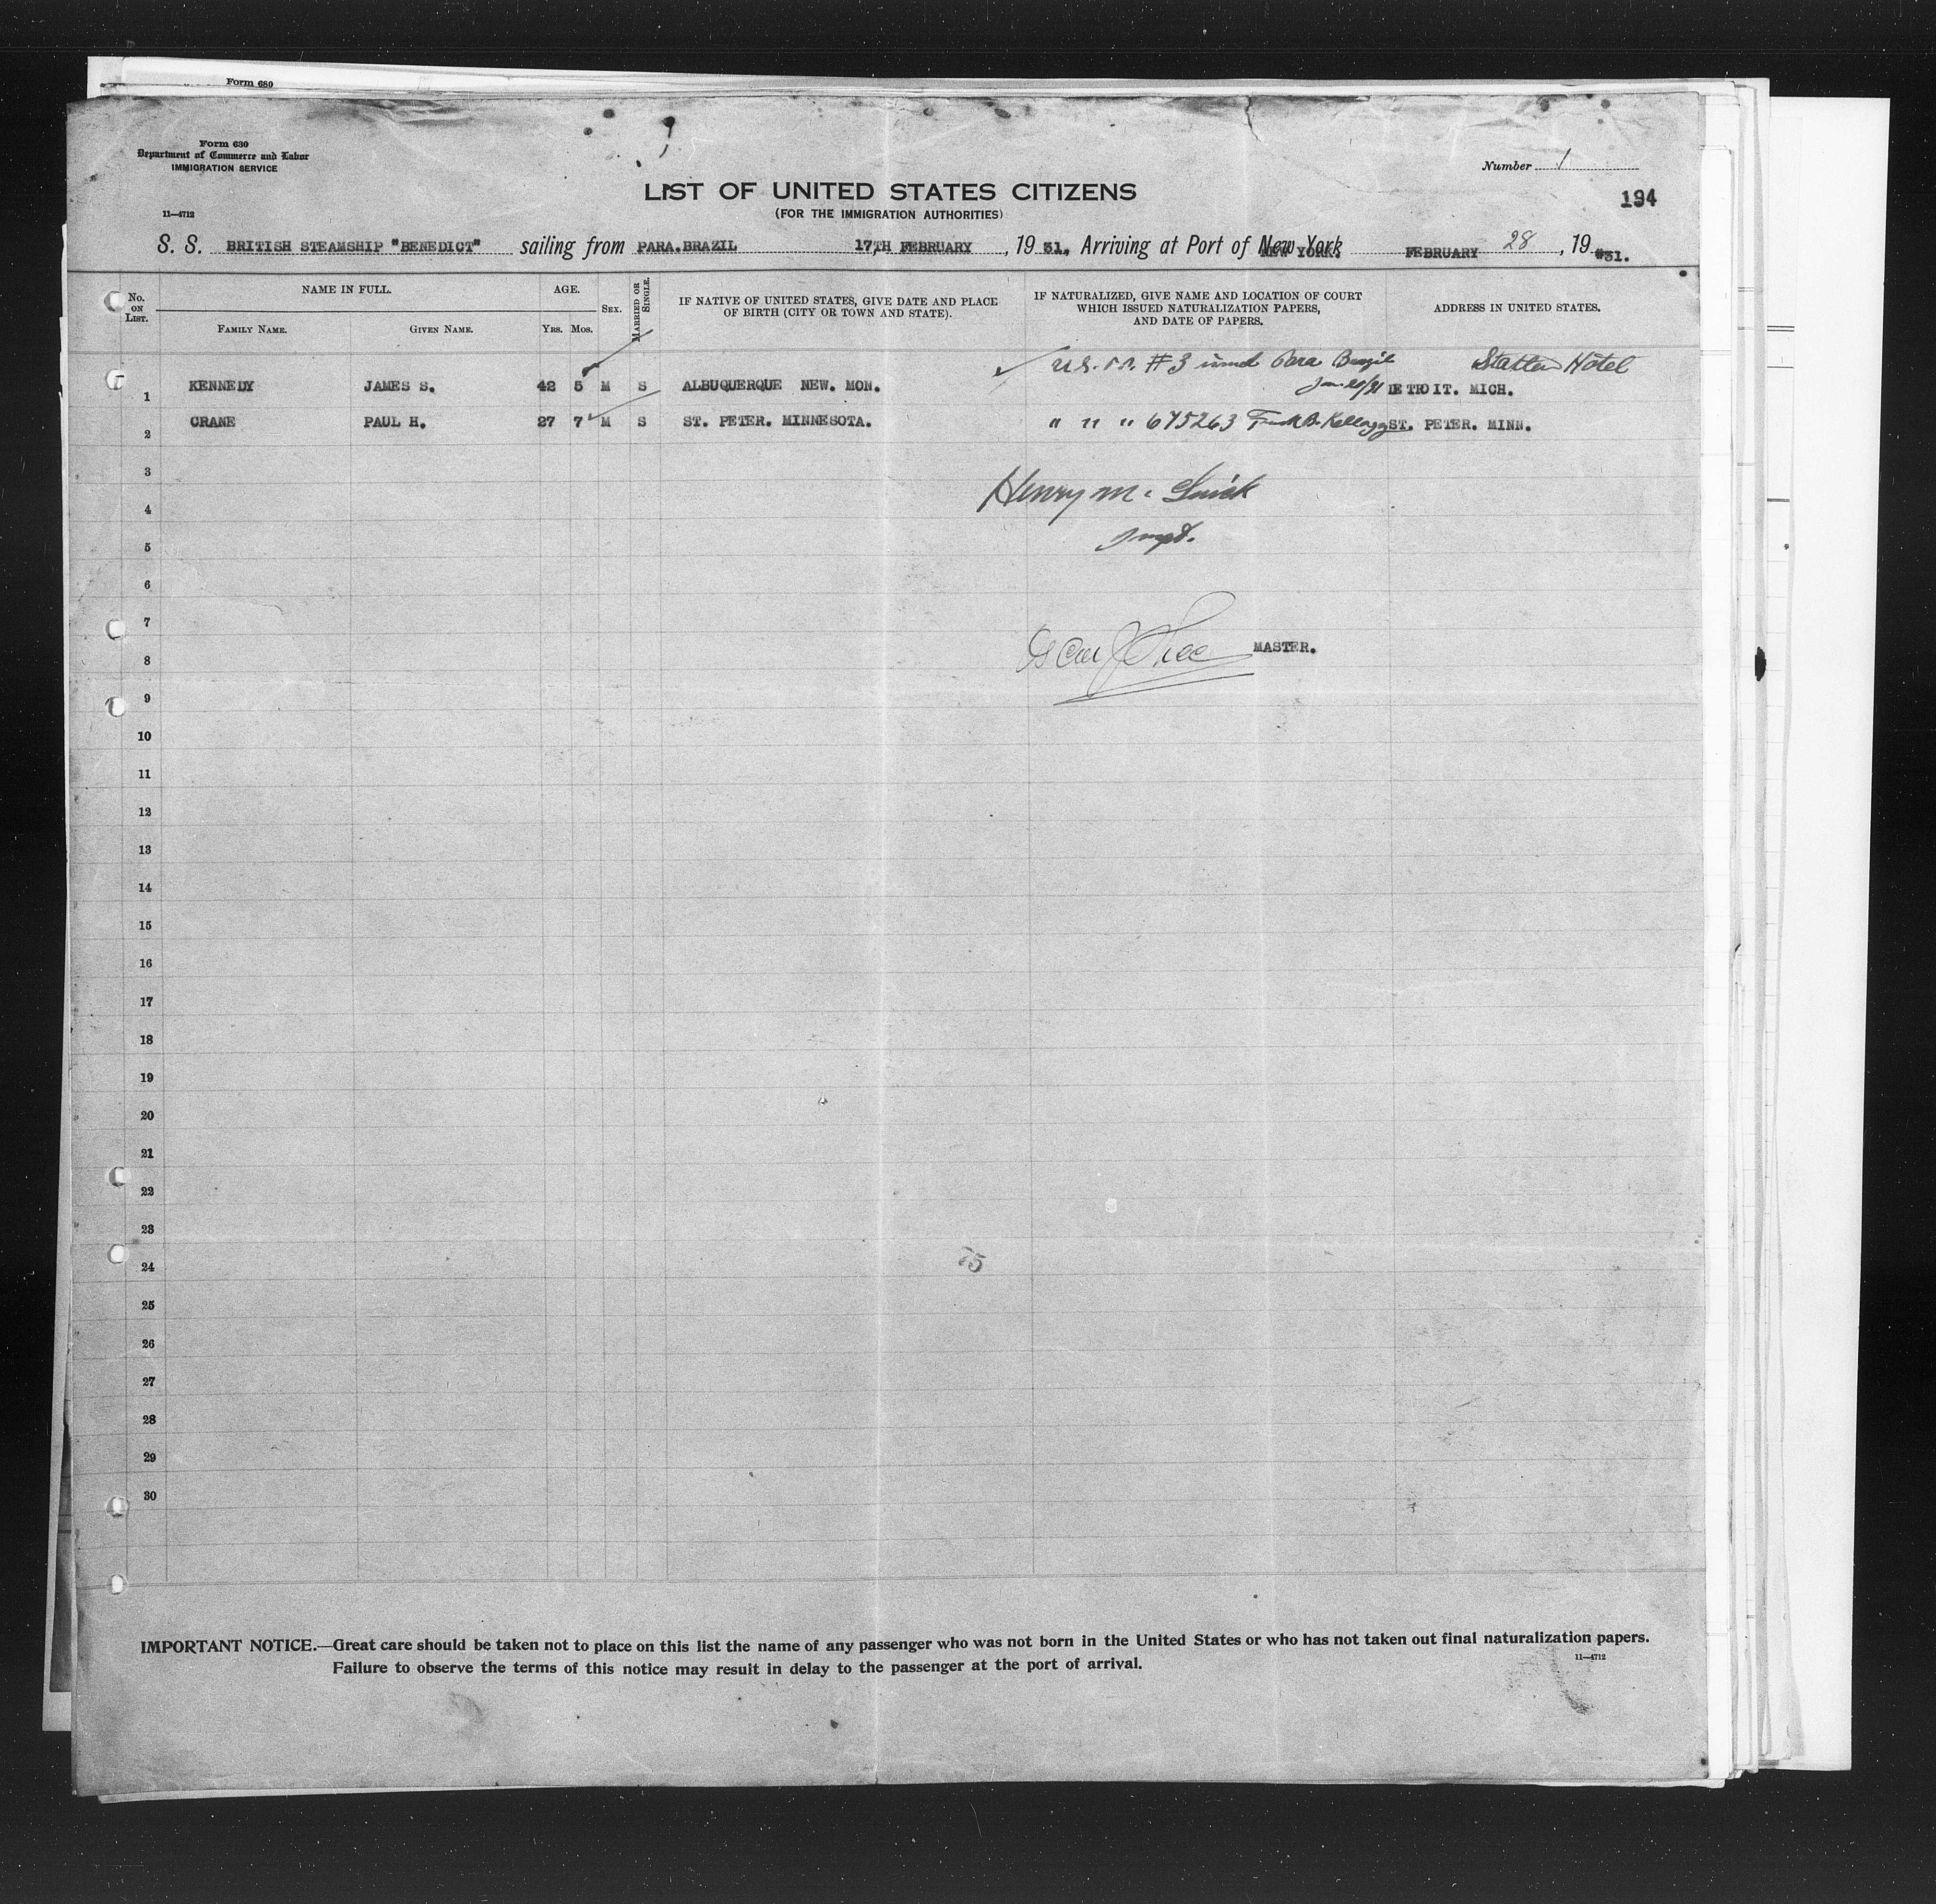 Form 680
Form 630
Department of Commerce and Labor
IMMIGRATION SERVICE
Number 1
194
LIST OF UNITED STATES CITIZENS
(FOR THE IMMIGRATION AUTHORITIES)
11—4712
S. S. BRITISH STEAMSHIP "BENEDICT" sailing from PARA.BRAZIL 17,TH FEBRUARY, 19 31, Arriving at Port of New York NEW YORK. FEBRUARY 28, 19 31.
No. ON LIST.
NAME IN FULL.
FAMILY NAME.
GIVEN NAME.
AGE.
YRS. MOS.
SEX.
MARRIED OR SINGLE.
IF NATIVE OF UNITED STATES, GIVE DATE AND PLACE
OF BIRTH (CITY OR TOWN AND STATE).
IF NATURALIZED, GIVE NAME AND LOCATION OF COURT
WHICH ISSUED NATURALIZATION PAPERS,
AND DATE OF PAPERS.
ADDRESS IN UNITED STATES.
U.S. #3 Para Brazil Hotel
1 KENNEDY JAMES S. 42 5 M S ALBUQUERQUE NEW. MON. Jan 20/31 DETROIT. MICH.
2 CRANE PAUL H. 27 7 M S ST. PETER. MINNESOTA. " " " 675263 Frank B. Kellogg ST. PETER. MINN.
3
Henry M.
4
5
6
7
MASTER.
8
9
10
11
12
13
14
15
16
17
18
19
20
21
22
23
75
24
25
26
27
28
29
30
IMPORTANT NOTICE.—Great care should be taken not to place on this list the name of any passenger who was not born in the United States or who has not taken out final naturalization papers.
Failure to observe the terms of this notice may result in delay to the passenger at the port of arrival.
11—4712